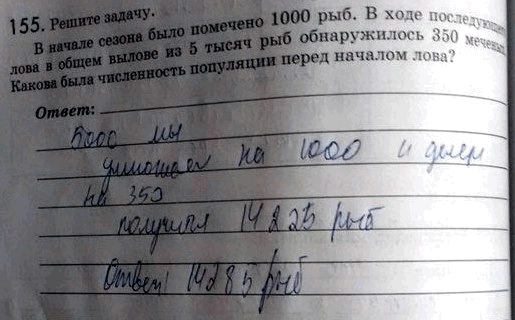 155. Решите задачу.
В начале сезона было помечено 1000 рыб. В ходе последующего
лова в общем вылове из 5 тысяч рыб обнаружилось 350 меченых.
Какова была численность популяции перед началом лова?
Ответ:
5000 мы
умножаем на 1000 и делим
на 350
получил 14225 рыб
Ответ: 14285 рыб